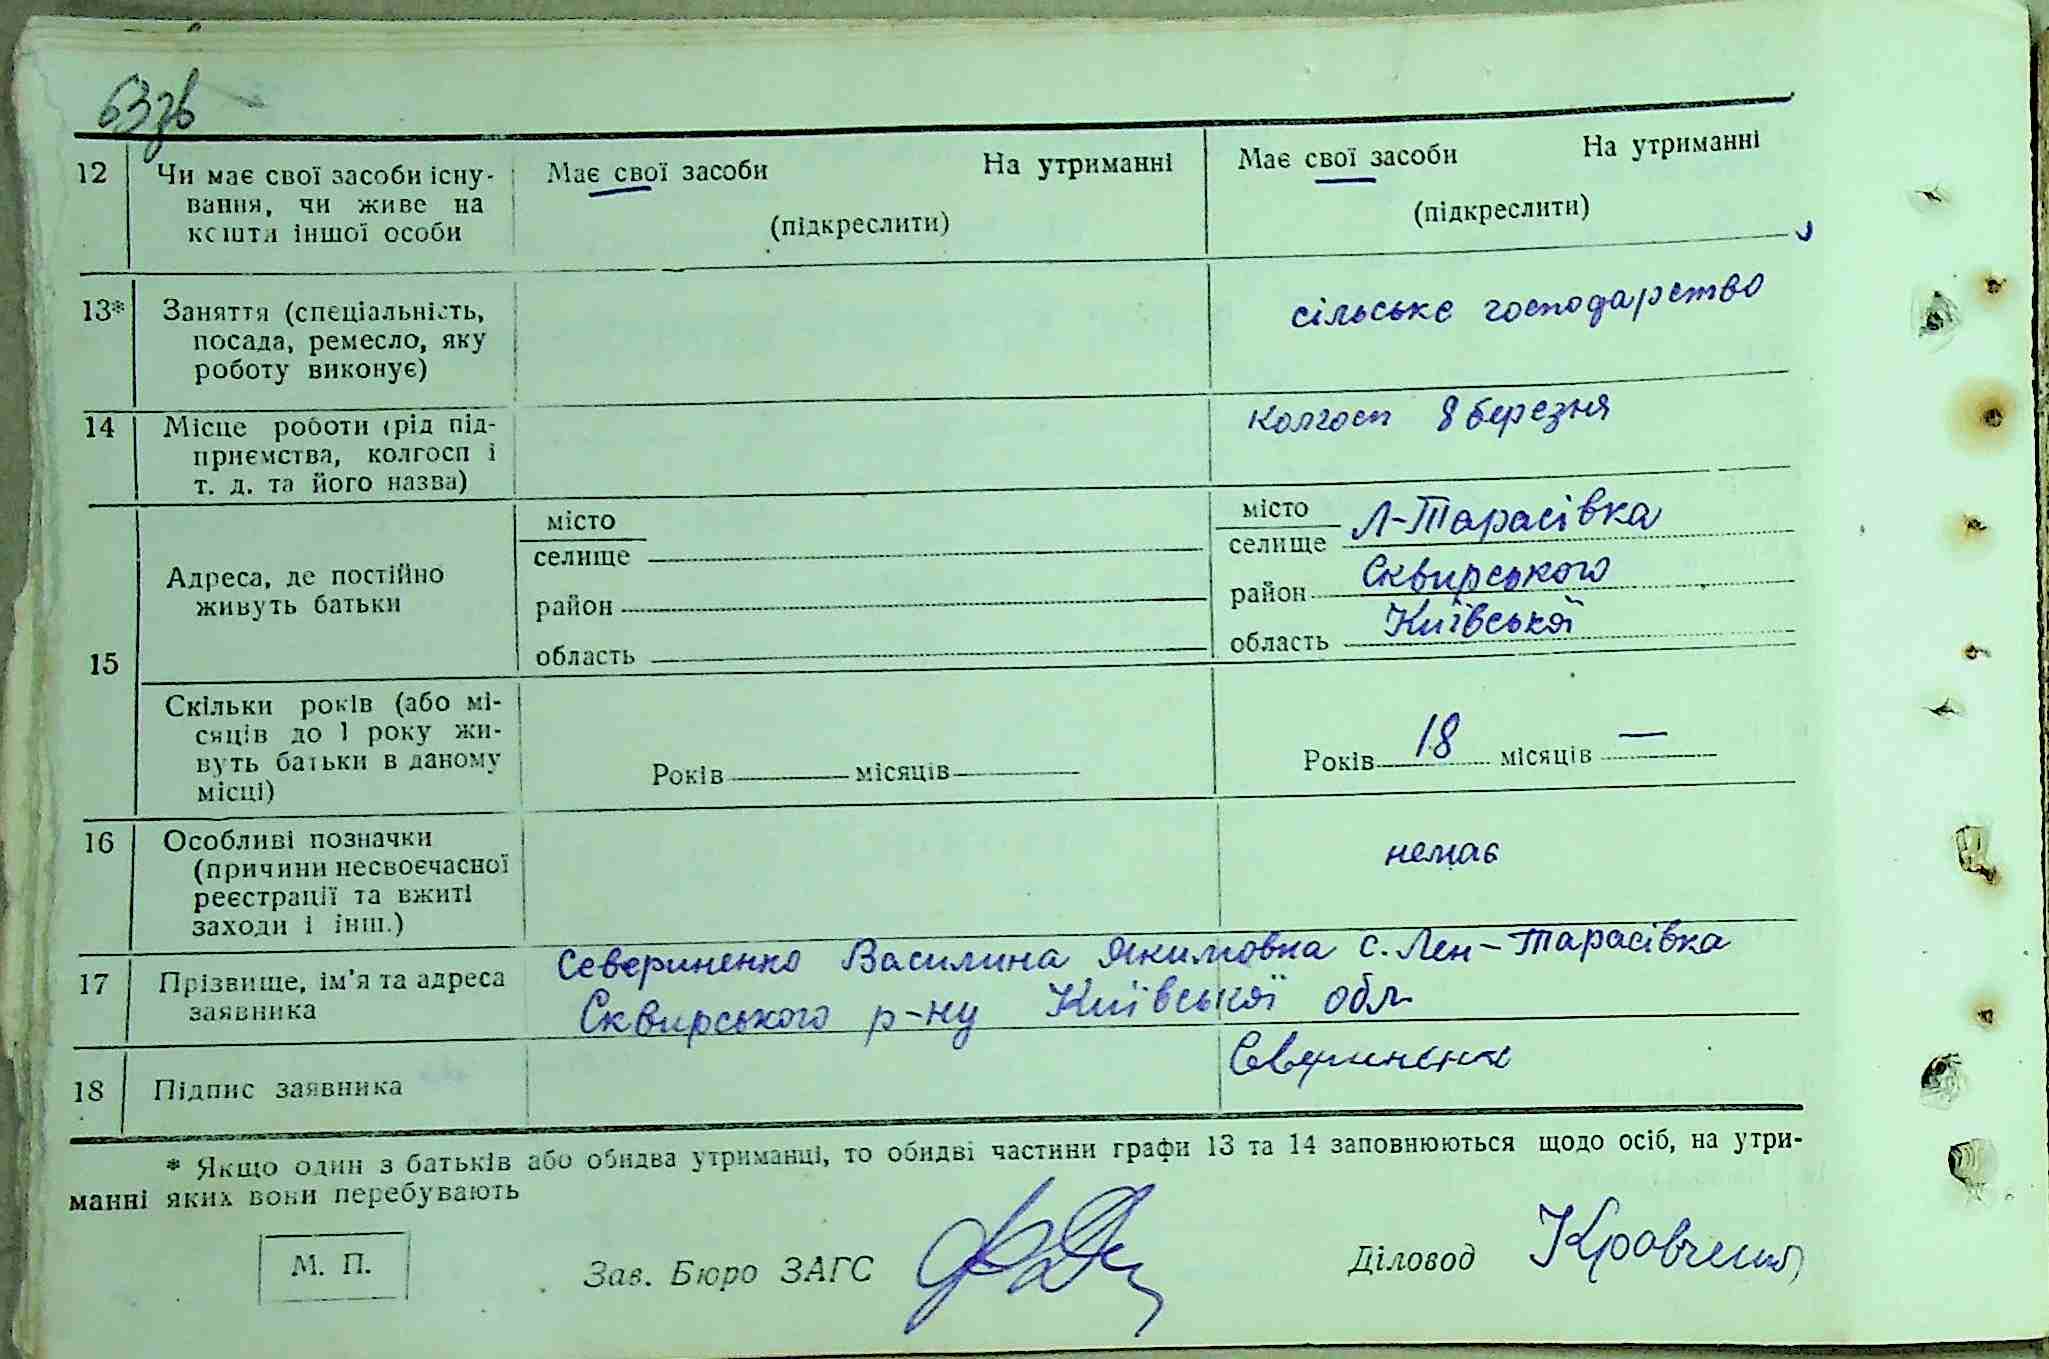 63зв
12 Чи має свої засоби існу- Має свої засоби На утриманні Має свої засоби На утриманні
вання, чи живе на (підкреслити) (підкреслити)
кошти іншої особи
13* Заняття (спеціальність, сільське господарство
посада, ремесло, яку
роботу виконує)
14 Місце роботи (рід під- Колгосп 8 березня
приємства, колгосп і
т. д. та його назва)
15 Адреса, де постійно
живуть батьки
місто
селище
район
область
місто
селище Л-Тарасівка
район Сквирського
область Київської
Скільки років (або мі-
сяців до 1 року жи-
вуть батьки в даному
місці)
Років місяців Років 18 місяців —
16 Особливі позначки немає
(причини несвоєчасної
реєстрації та вжиті
заходи і інш.)
17 Прізвище, ім'я та адреса Севериненко Василина Якимовна с. Лен-Тарасівка
заявника Сквирського р-ну Київської обл
18 Підпис заявника Севериненк
* Якщо один з батьків або обидва утриманці, то обидві частини графи 13 та 14 заповнюються щодо осіб, на утри-
манні яких вони перебувають
М. П. Зав. Бюро ЗАГС Діловод